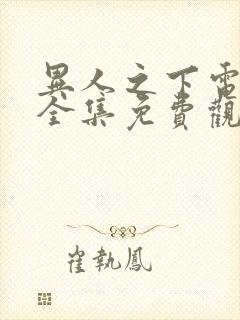 異人之下電
全集免費觀
崔執鳳